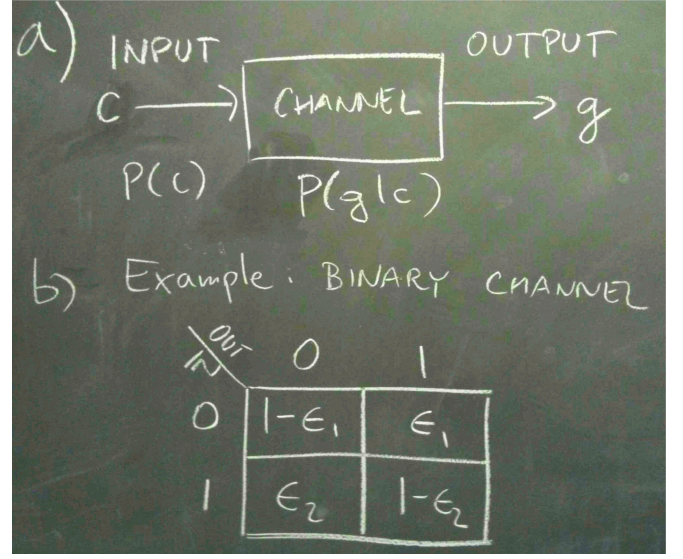 a) INPUT OUTPUT
C CHANNEL g
P(c) P(g|c)
b) Example: BINARY CHANNEL
OUT
IN 0 1
0 1-ϵ₁ ϵ₁
1 ϵ₂ 1-ϵ₂